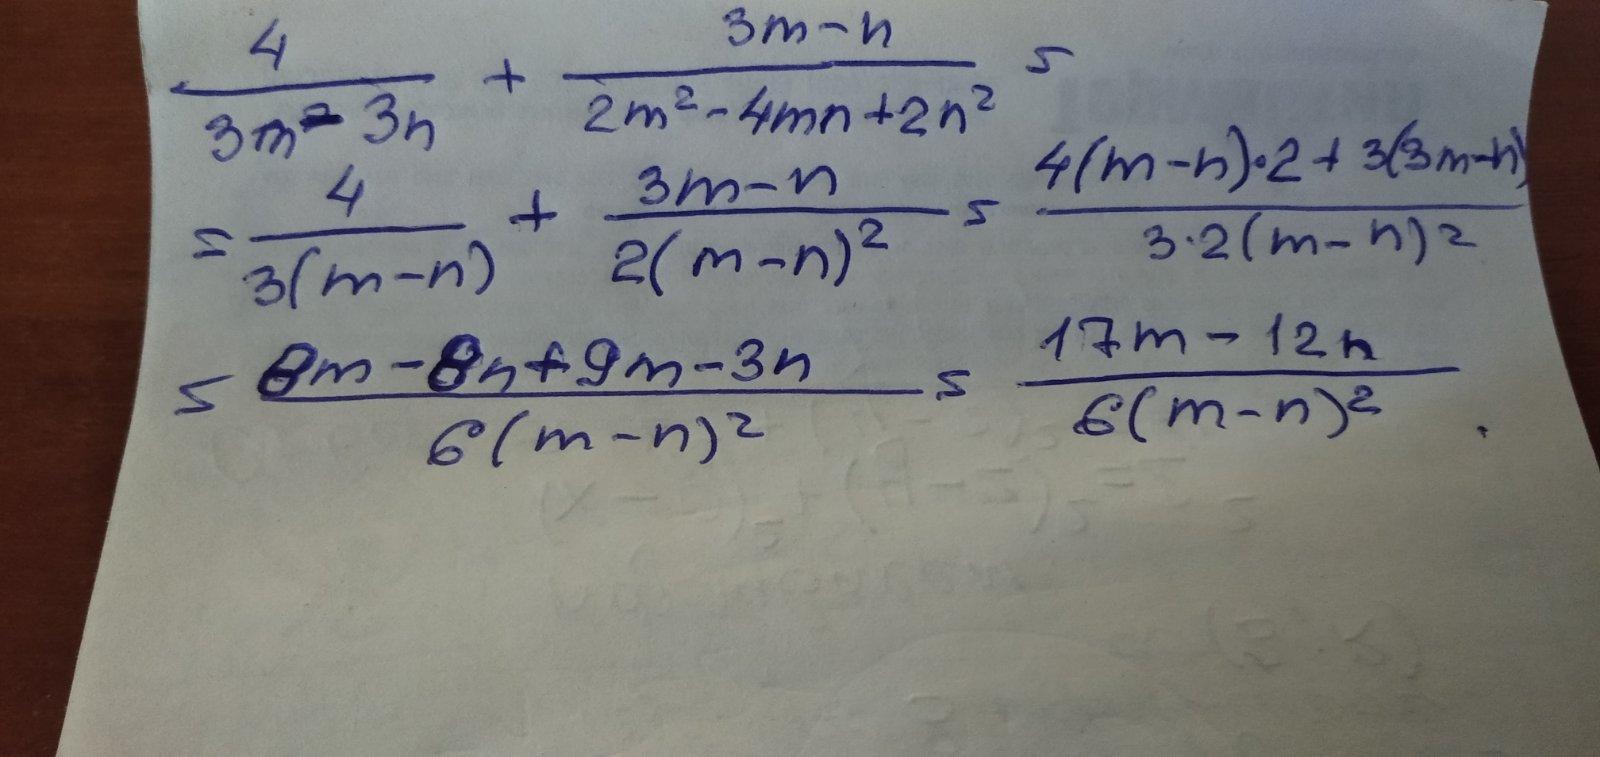 4/(3m - 3n) + (3m-n)/(2m²-4mn+2n²) =
= 4/(3(m-n)) + (3m-n)/(2(m-n)²) = (4(m-n)·2+3(3m-n))/(3·2(m-n)²)
= (8m-8n+9m-3n)/(6(m-n)²) = (17m-12n)/(6(m-n)²).